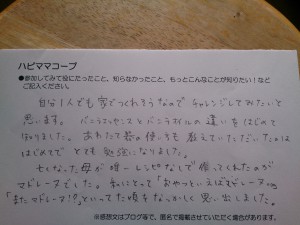 ハピママコープ
●参加してみて役にたったこと、知らなかったこと、もっとこんなことが知りたい！など
ご記入ください。
自分1人でも家でつくれそうなので チャレンジしてみたいと
思います。 バニラエッセンスとバニラオイルの違いをはじめて
知りました。 あわたて器の使い方も 教えていただいたのは
はじめてで とても勉強になりました。
亡くなった母が唯一レシピなしで作ってくれたのが
マドレーヌでした。 私にとって「おやつといえばマドレーヌ」
「またマドレーヌ!?」といってた頃をなつかしく思い出しました。
※感想文はブログ等で、匿名で掲載させていただく場合があります。